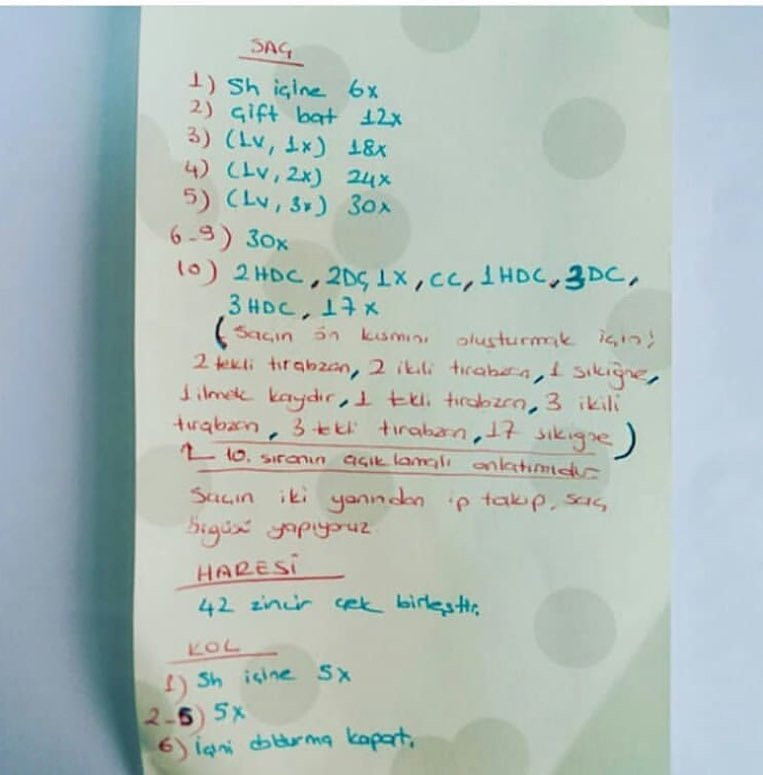 SAÇ
1) Sh içine 6x
2) Çift bat 12x
3) (1v, 1x) 18x
4) (1v, 2x) 24x
5) (1v, 3x) 30x
6-9) 30x
10) 2 HDC, 2DC, 1X, CC, 1HDC, 3DC,
3 HDC, 17 x
(Saçın ön kısmını oluşturmak için;
2 tekli tırabzan, 2 ikili tırabzan, 1 sıkiğne,
1 ilmek kaydır, 1 tekli tırabzan, 3 ikili
tırabzan, 3 tekli tırabzan, 17 sıkigne)
10. sıranın açıklamalı anlatımıdır
Saçın iki yanından ip takıp, saç
örgüsü yapıyoruz
HARESİ
42 zincir çek birleştir.
KOL
1) Sh içine 5x
2-5) 5x
6) içini doldurma kapat.